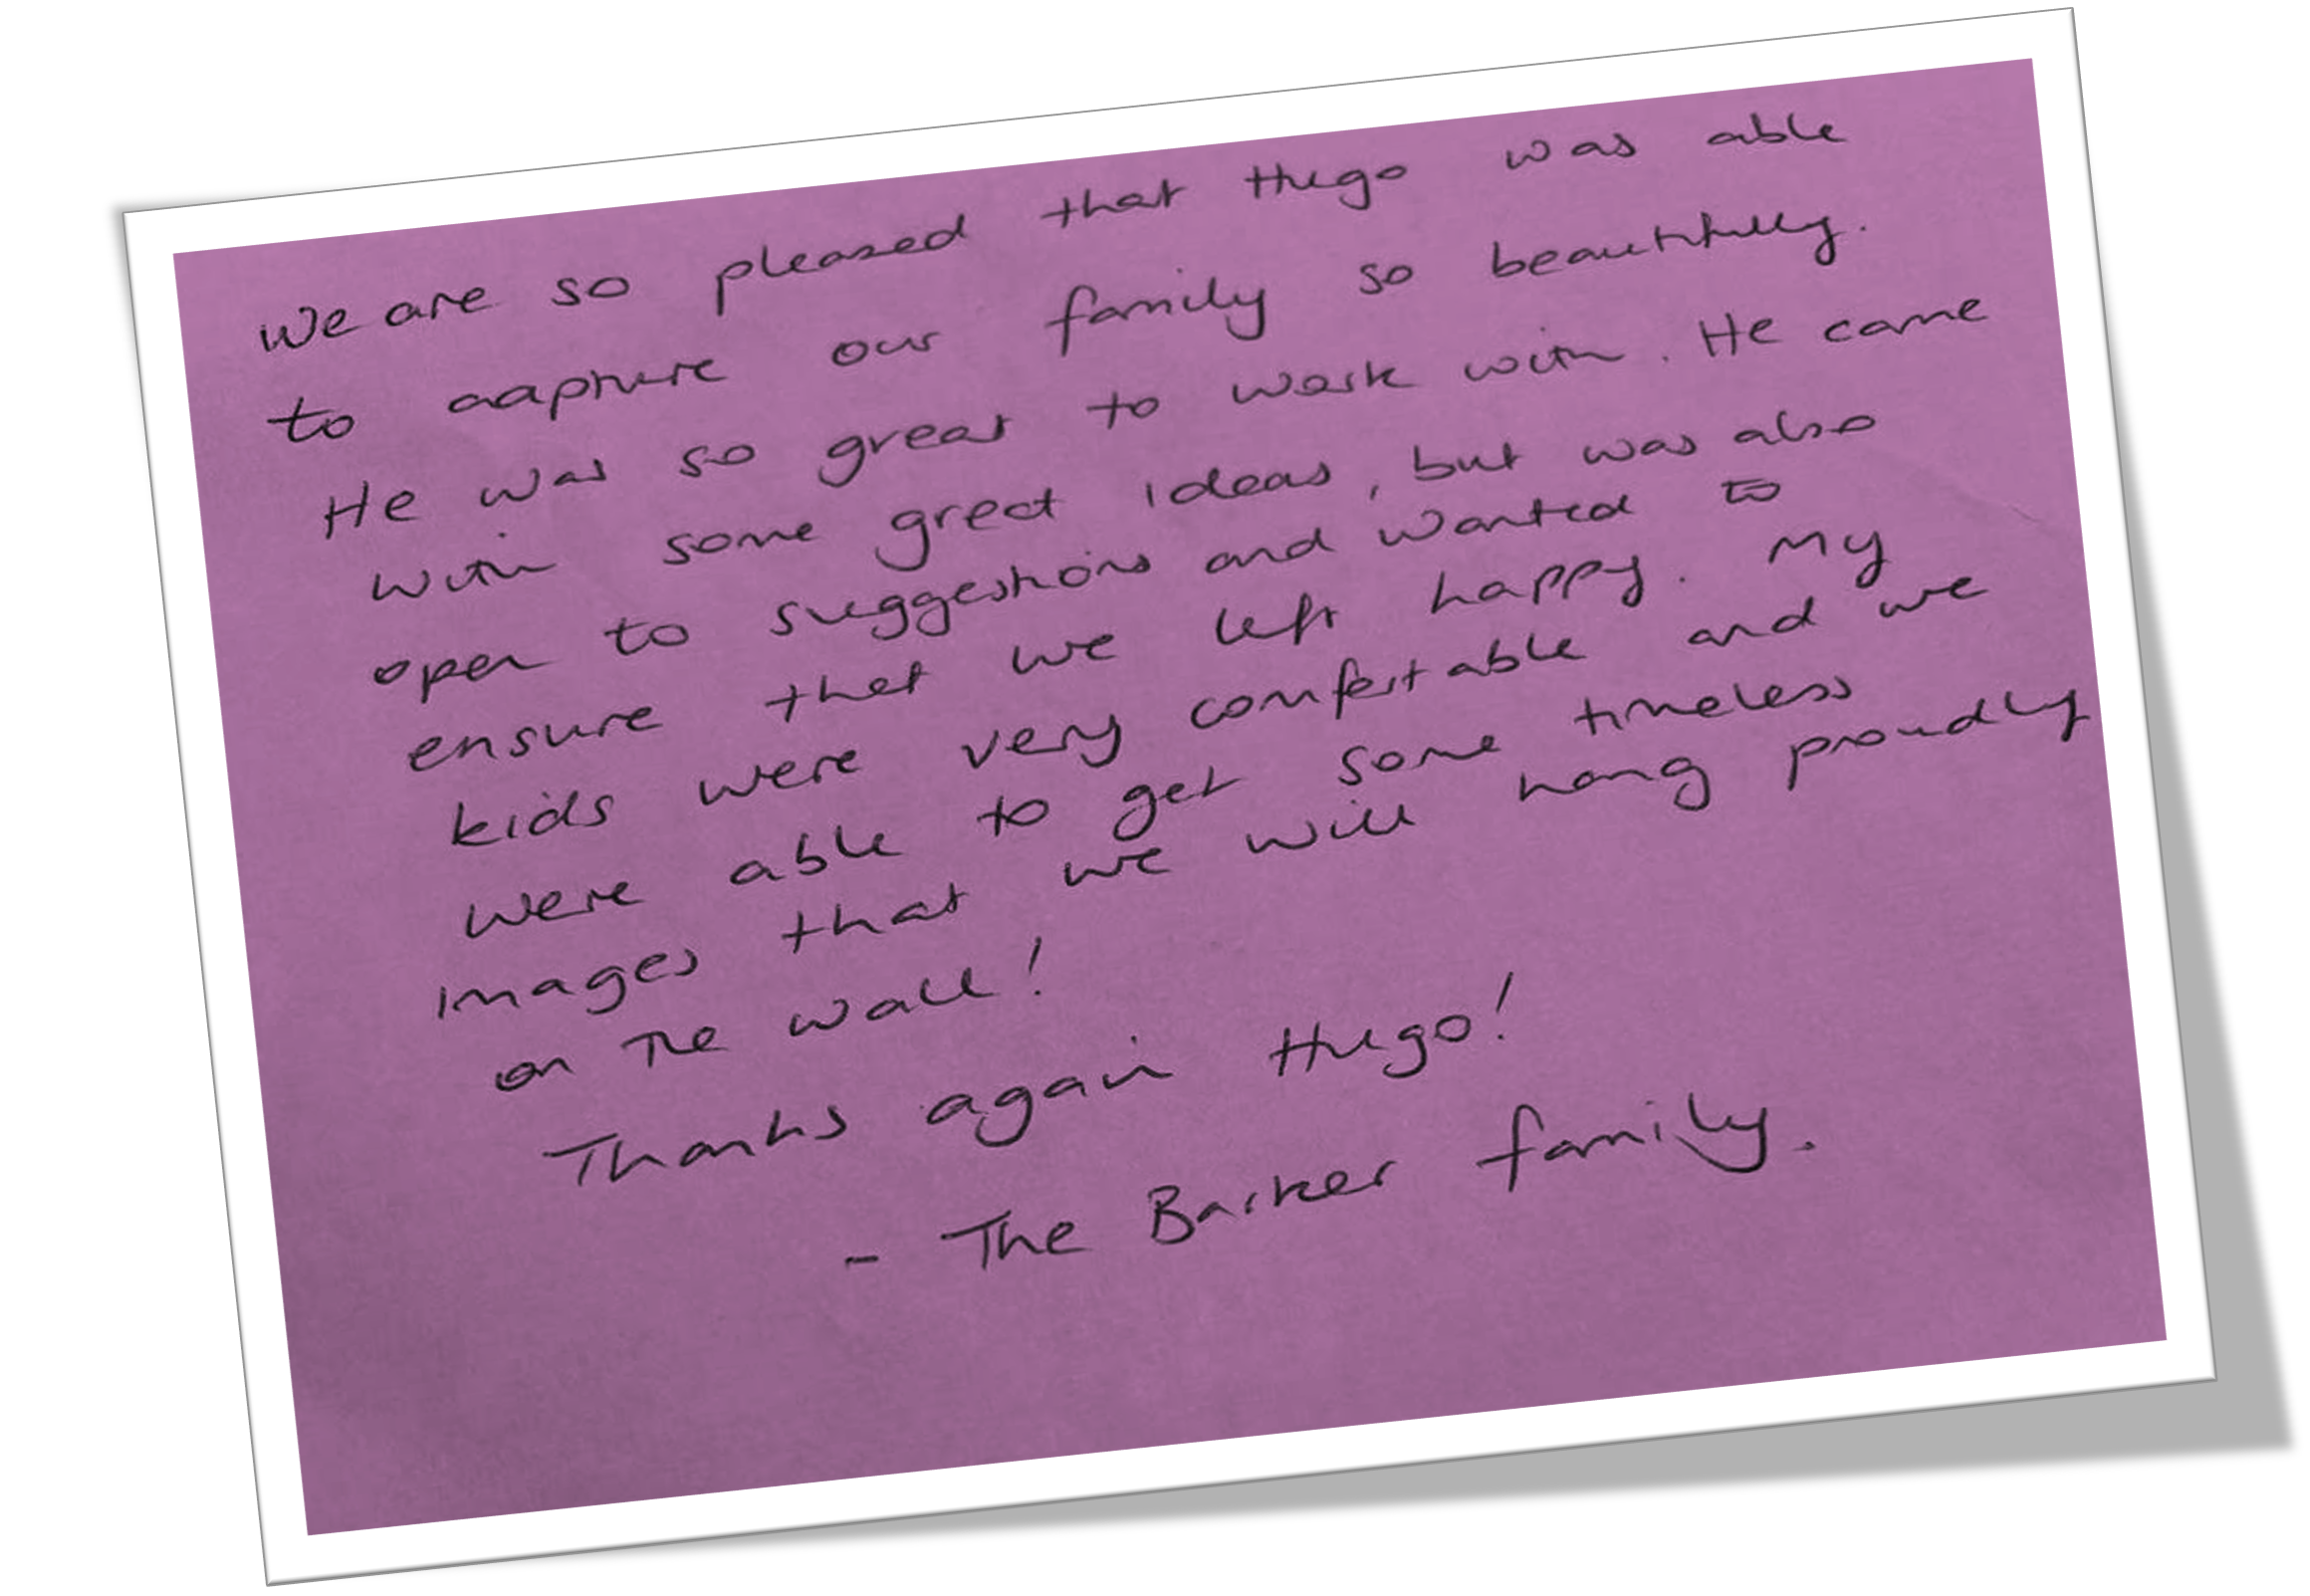 We are so pleased that Hugo was able
to capture our family so beautifully.
He was so great to work with. He came
with some great ideas, but was also
open to suggestions and wanted to
ensure that we left happy. My
kids were very comfortable and we
were able to get some timeless
images that we will hang proudly
on the wall!
Thanks again Hugo!
- The Barker family.